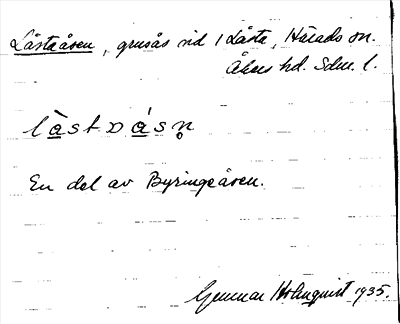 Låstaåsen, grusås vid 1 Låsta, Härads sn.
Åkers hd. Sdm. l.
làstɒásn̥
En del av Byringeåsen.
Gunnar Holmquist 1935.